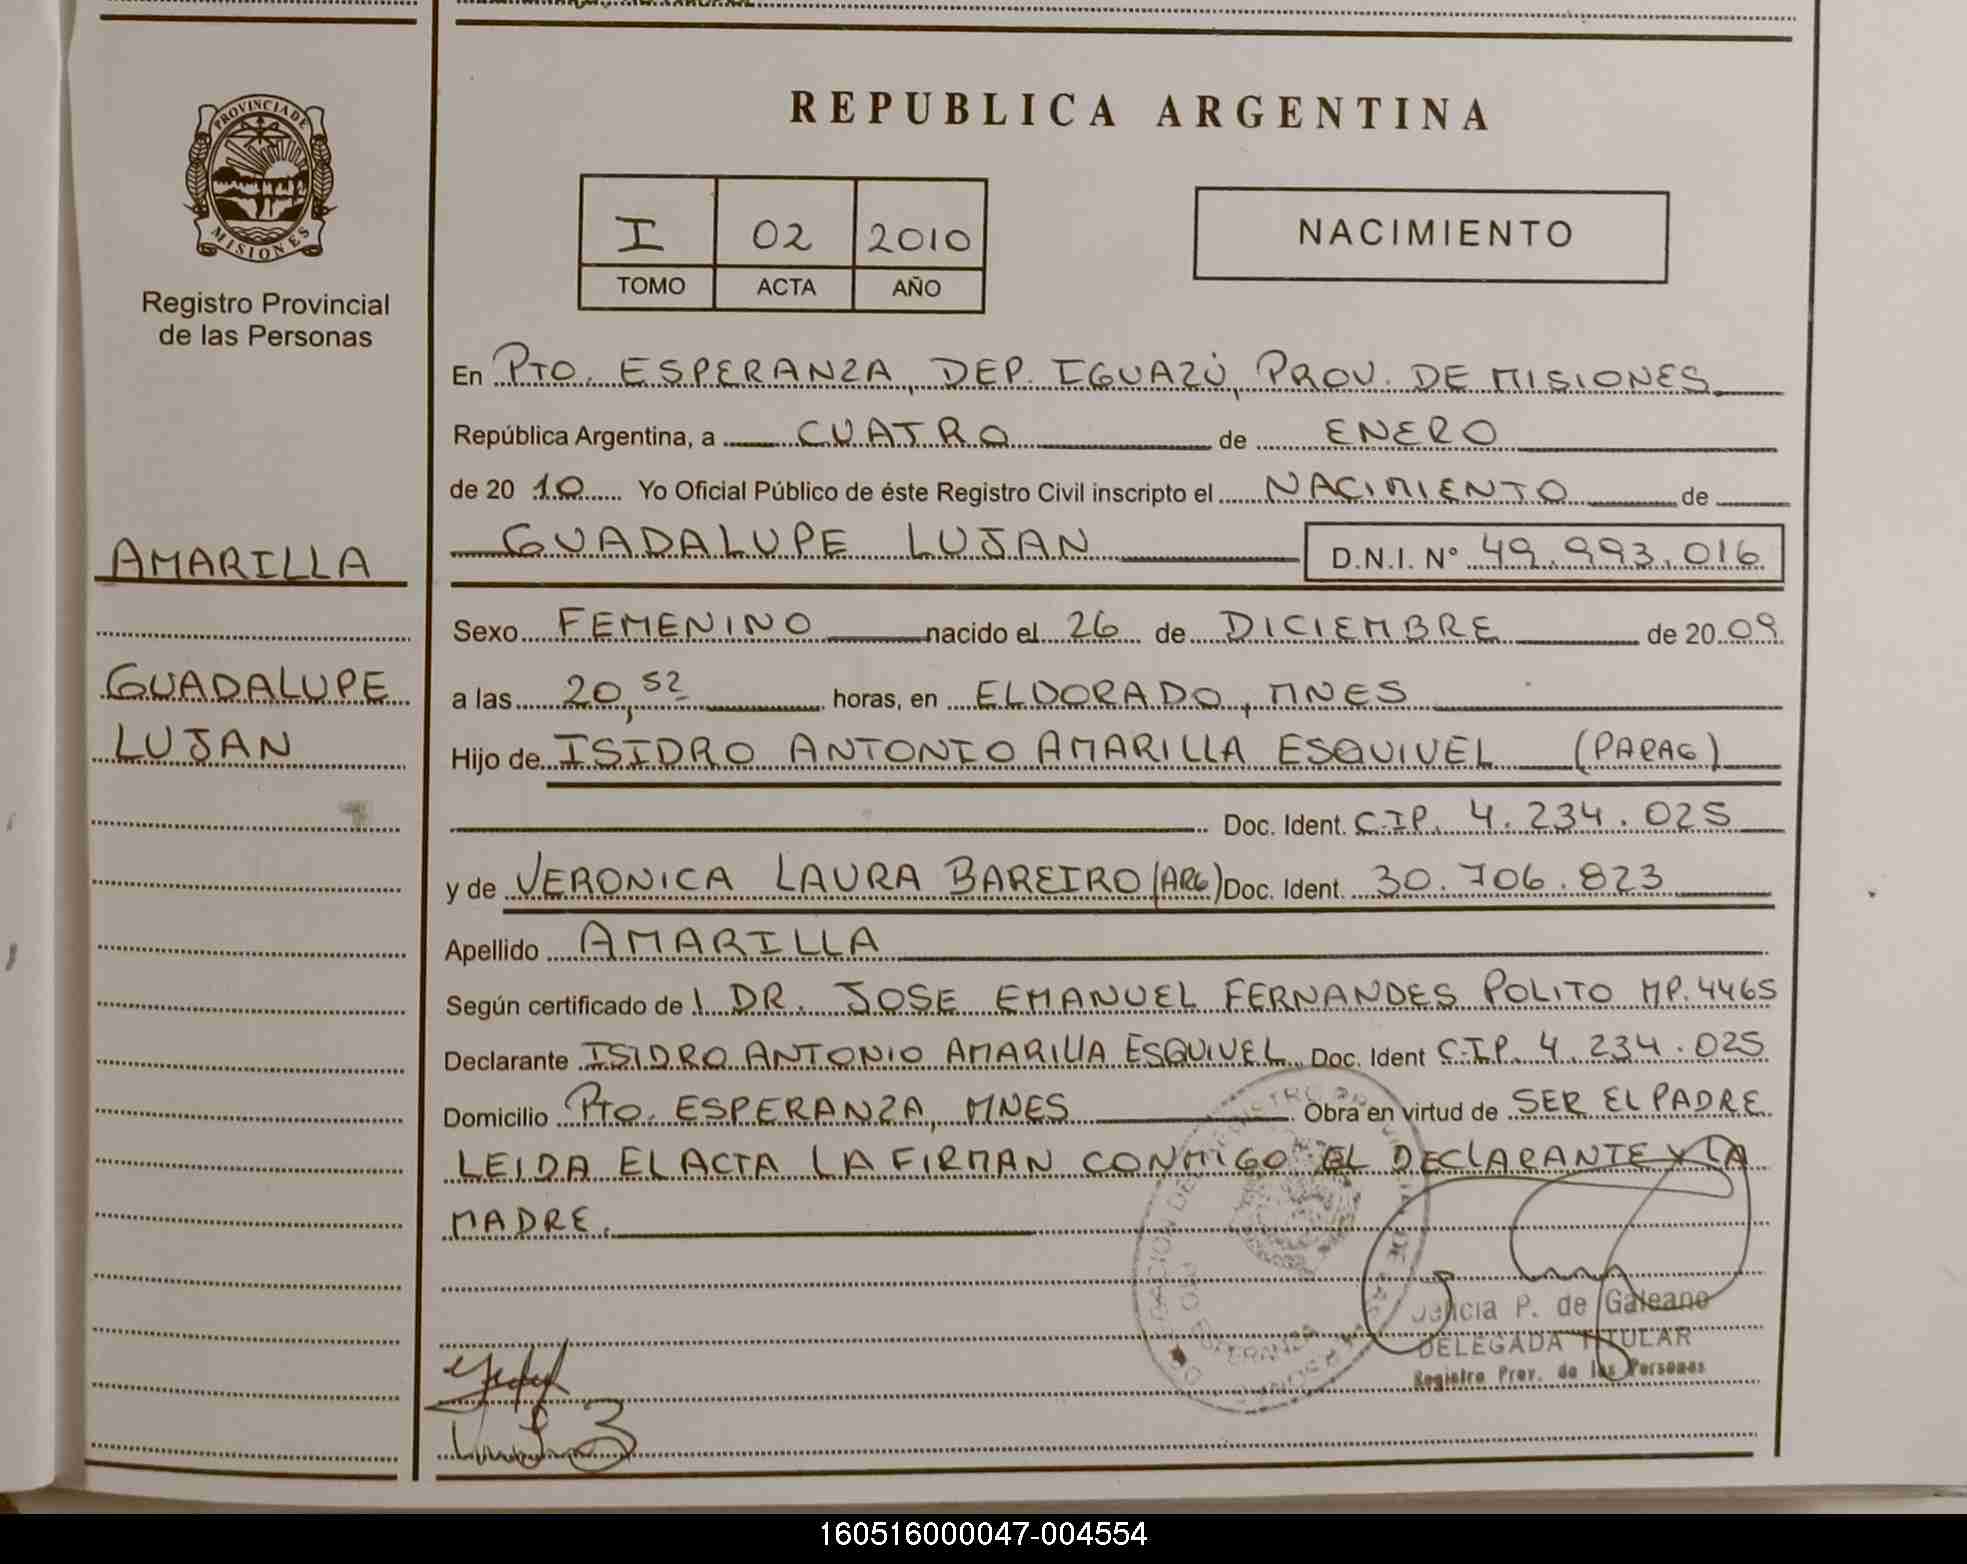 REPUBLICA ARGENTINA
PROVINCIA DE
MISIONES
Registro Provincial
de las Personas
I 02 2010
TOMO ACTA AÑO
NACIMIENTO
AMARILLA
GUADALUPE
LUJAN
En PTO. ESPERANZA, DEP. IGUAZÚ, PROV. DE MISIONES
República Argentina, a CUATRO de ENERO
de 20 10 Yo Oficial Público de éste Registro Civil inscripto el NACIMIENTO de
GUADALUPE LUJAN D.N.I. Nº 49.993.016
Sexo FEMENINO nacido el 26 de DICIEMBRE de 20 09
a las 20,52 horas, en ELDORADO, MNES
Hijo de ISIDRO ANTONIO AMARILLA ESQUIVEL (PARAG)
Doc. Ident. C.I.P. 4.234.025
y de VERONICA LAURA BAREIRO (ARG) Doc. Ident. 30.706.823
Apellido AMARILLA
Según certificado de l DR. JOSE EMANUEL FERNANDES POLITO MP.4465
Declarante ISIDRO ANTONIO AMARILLA ESQUIVEL Doc. Ident C.I.P. 4.234.025
Domicilio PTO. ESPERANZA, MNES Obra en virtud de SER EL PADRE
LEIDA EL ACTA LA FIRMAN CONMIGO EL DECLARANTE Y LA
MADRE.
P. de Galeano
DELEGADA TITULAR
Registro Prov. de las Personas
160516000047-004554